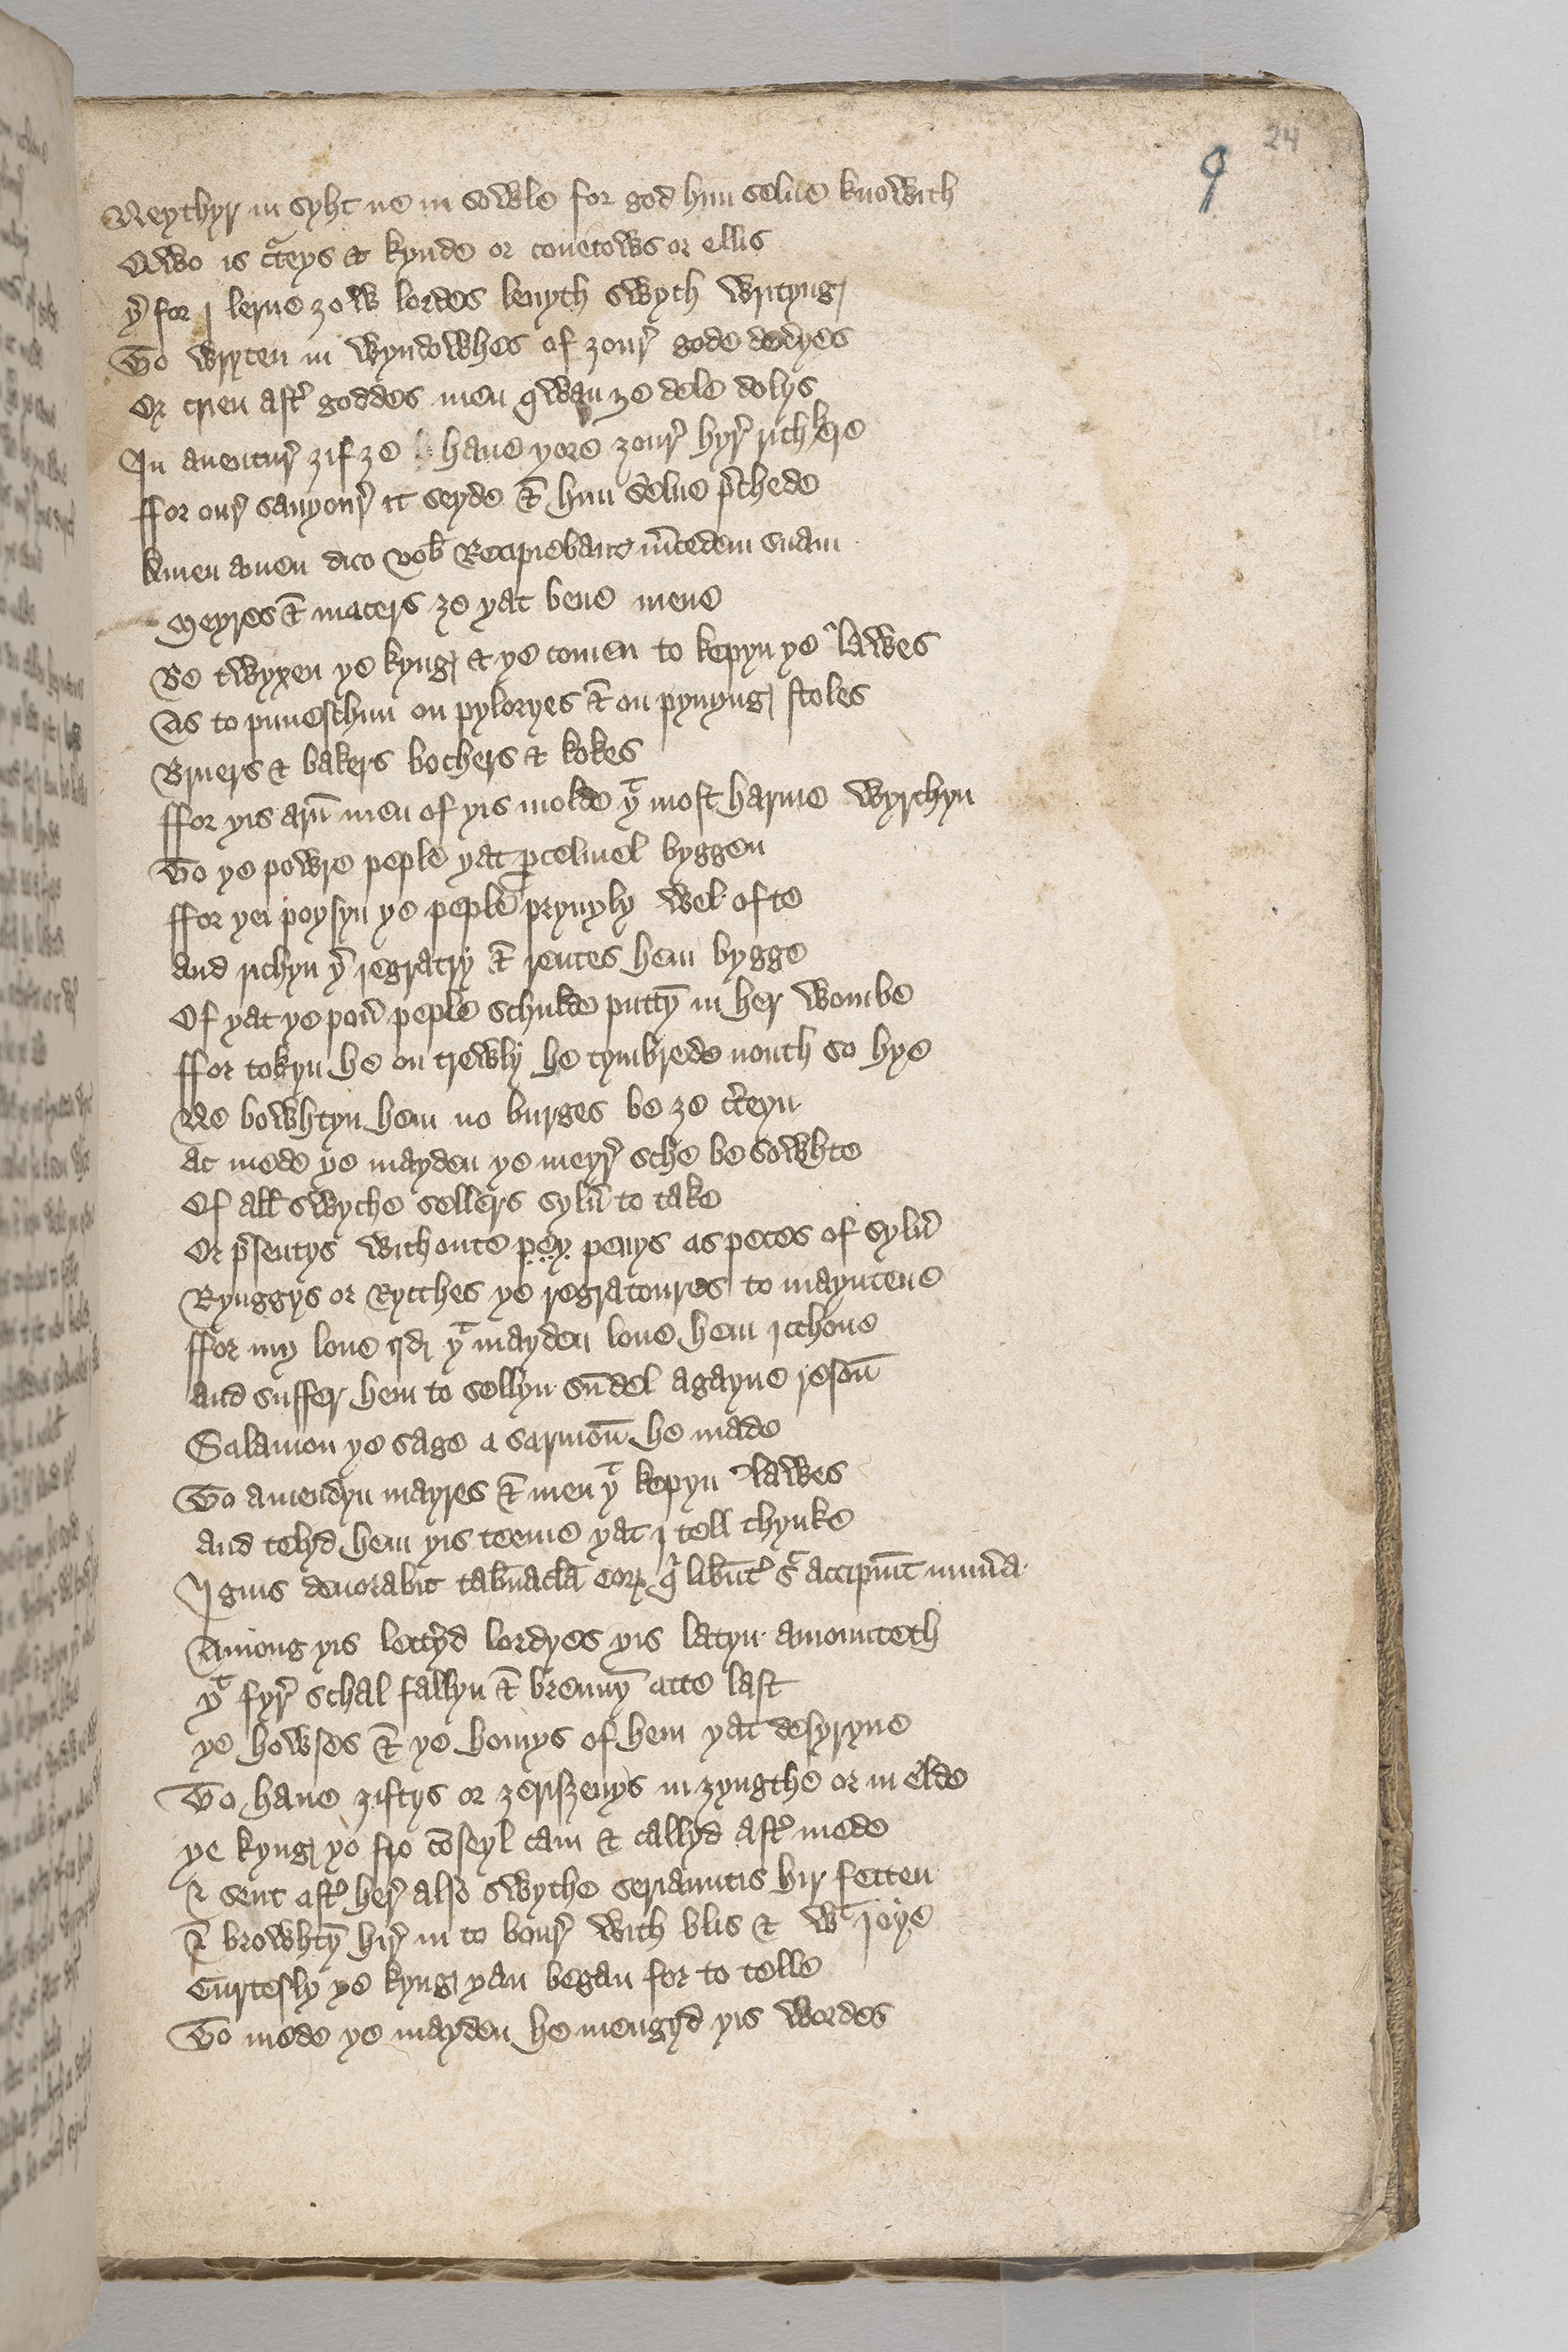 24
9
Neythyr in syht ne in sowle for god him selue knowith
Qwo is c̉teys & kynde or couetows or ellis
ẏ for j lerne ȝow lordes leuyth swych writyng
To wryten in wyndowhes of ȝour̉ gode dedyes
Or crien aft̉ goddes men qwan ȝe dele dolys
In auentur̉ ȝif ȝe haue yore ȝour̉ hyr̉ richkere
ffor our̉ sauyour̉ it seyde & him selue p̉chede
Amen amen dico vob̄ Recipiebant m̉cedem suam
Meyres & maters ȝe yat bene mene
Be twyxen ye kyng & ye comen to kepyn ye lawes
As to puneschin on pyloryes & on pynyng stoles
Bruers & bakers bochers & kokes
ffor yis arn̄ men of yis molde yᵗ most harme wyrchyn
To ye powre peple yat ꝑcelmel byggen
ffor yei poysyn ye peple pryuyly wel ofte
and richyn ẏ regratry & rentes hem bygge
Of yat ye poủ peple schulde puttȳ in her wombe
ffor tokyn he on trewly he tymbrede nouth so hye
Ne bowhtyn hem no burges be ȝe c̉teyn
at mede ye mayden ye meyr̉ sche be sowhte
Of all swyche sellers sylủ to take
Or p̉sentys withoute pey penys as peces of sylủ
Rynggys or Rytches ye regratoures to mayntene
ffor my loue qd yᵗ mayden loue hem jcchone
and suffer hem to sellyn su̅del agayne resou̅
Salamon ye sage a sarmou̅ he made
To amendyn mayres & men yᵗ kepyn lawes
and telyd hem yis teeme yat j tell thynke
Ignis deuorabit tab̄nacla̅ eoꝝ q̉ libn̄t̉ accipiu̅t mun̉a
Among yis lett̉yd lordyes yis latyn amounteth
yᵗ fyr̉ schal fallyn & brenny̅ atte last
ye howses & ye homys of hem yat desyryne
To haue ȝiftys or ȝerisȝeuys in ȝyngthe or in elde
ye kyng yo fro co̅seyl cam & callyd aft̉ mede
& sent aft̉ her̉ also swythe seriauntis hir fetten
& browhty̅ hir̉ in to bour̉ with blis & wᵗ joye
Curtesly ye kyng yan began for to telle
To mede ye mayden he mengyd yis wordes